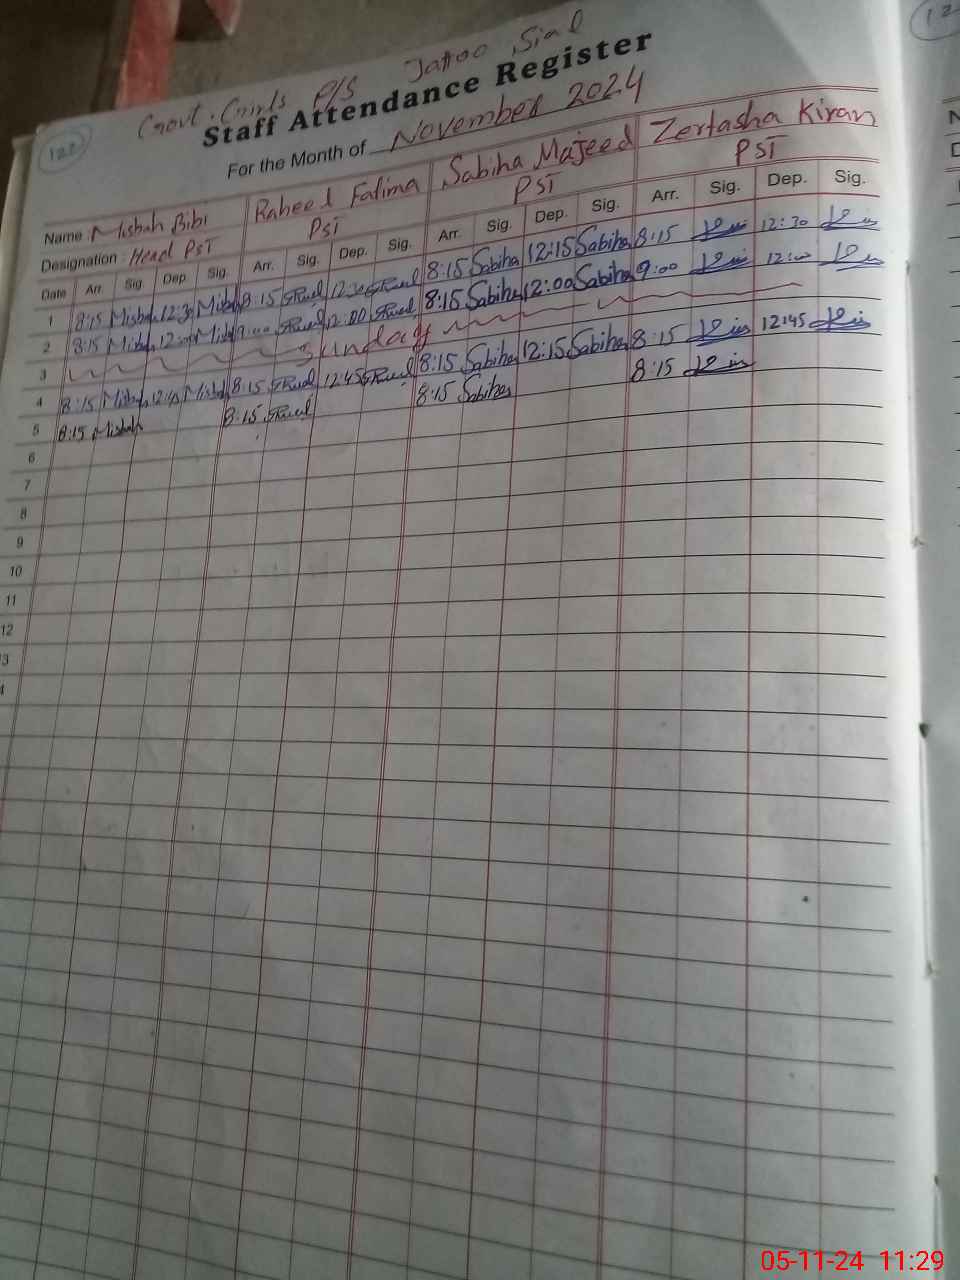 122
Govt. Girls P/S Jattoo Sial
Staff Attendance Register
For the Month of November 2024
Name Misbah Bibi Raheel Fatima Sabiha Majeed Zertasha Kiran
Designation : Head PST PST PST PST
Date Arr. Sig. Dep. Sig. Arr. Sig. Dep. Sig. Arr. Sig. Dep. Sig. Arr. Sig. Dep. Sig.
1 8:15 Misbah 12:30 Misbah 8:15 12:30 8:15 Sabiha 12:15 Sabiha 8:15 12:30
2 8:15 Misbah 12:00 Misbah 9:00 12:00 8:15 Sabiha 12:00 Sabiha 9:00 12:00
3 Sunday
4 8:15 Misbah 12:45 Misbah 8:15 12:45 8:15 Sabiha 12:15 Sabiha 8:15 12:45
5 8:15 Misbah 8:15 8:15 Sabiha 8:15
6
7
8
9
10
11
12
3
4
05-11-24 11:29